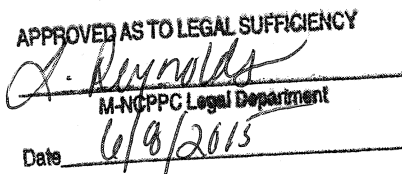 APPROVED AS TO LEGAL SUFFICIENCY
L. Reynolds
M-NCPPC Legal Department
Date 6/8/2015